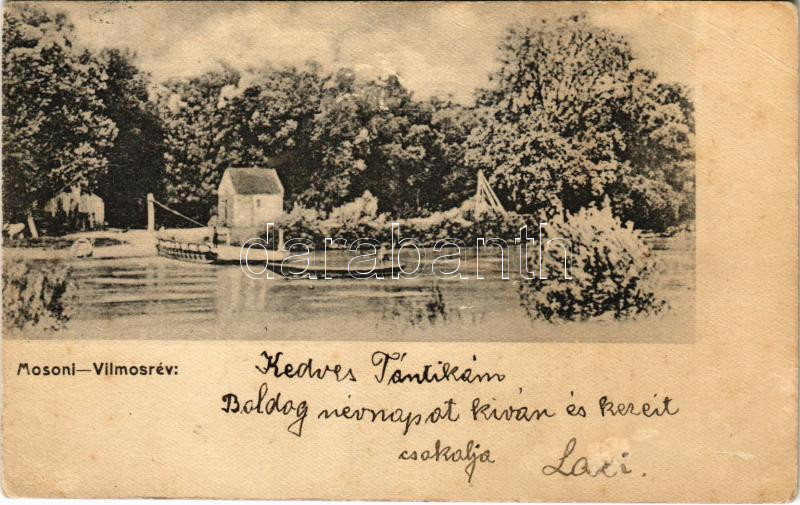 darabanth
Mosoni—Vilmosrév:
Kedves Tántikám
Boldog névnapot kiván és kezeit
csokolja Laci.